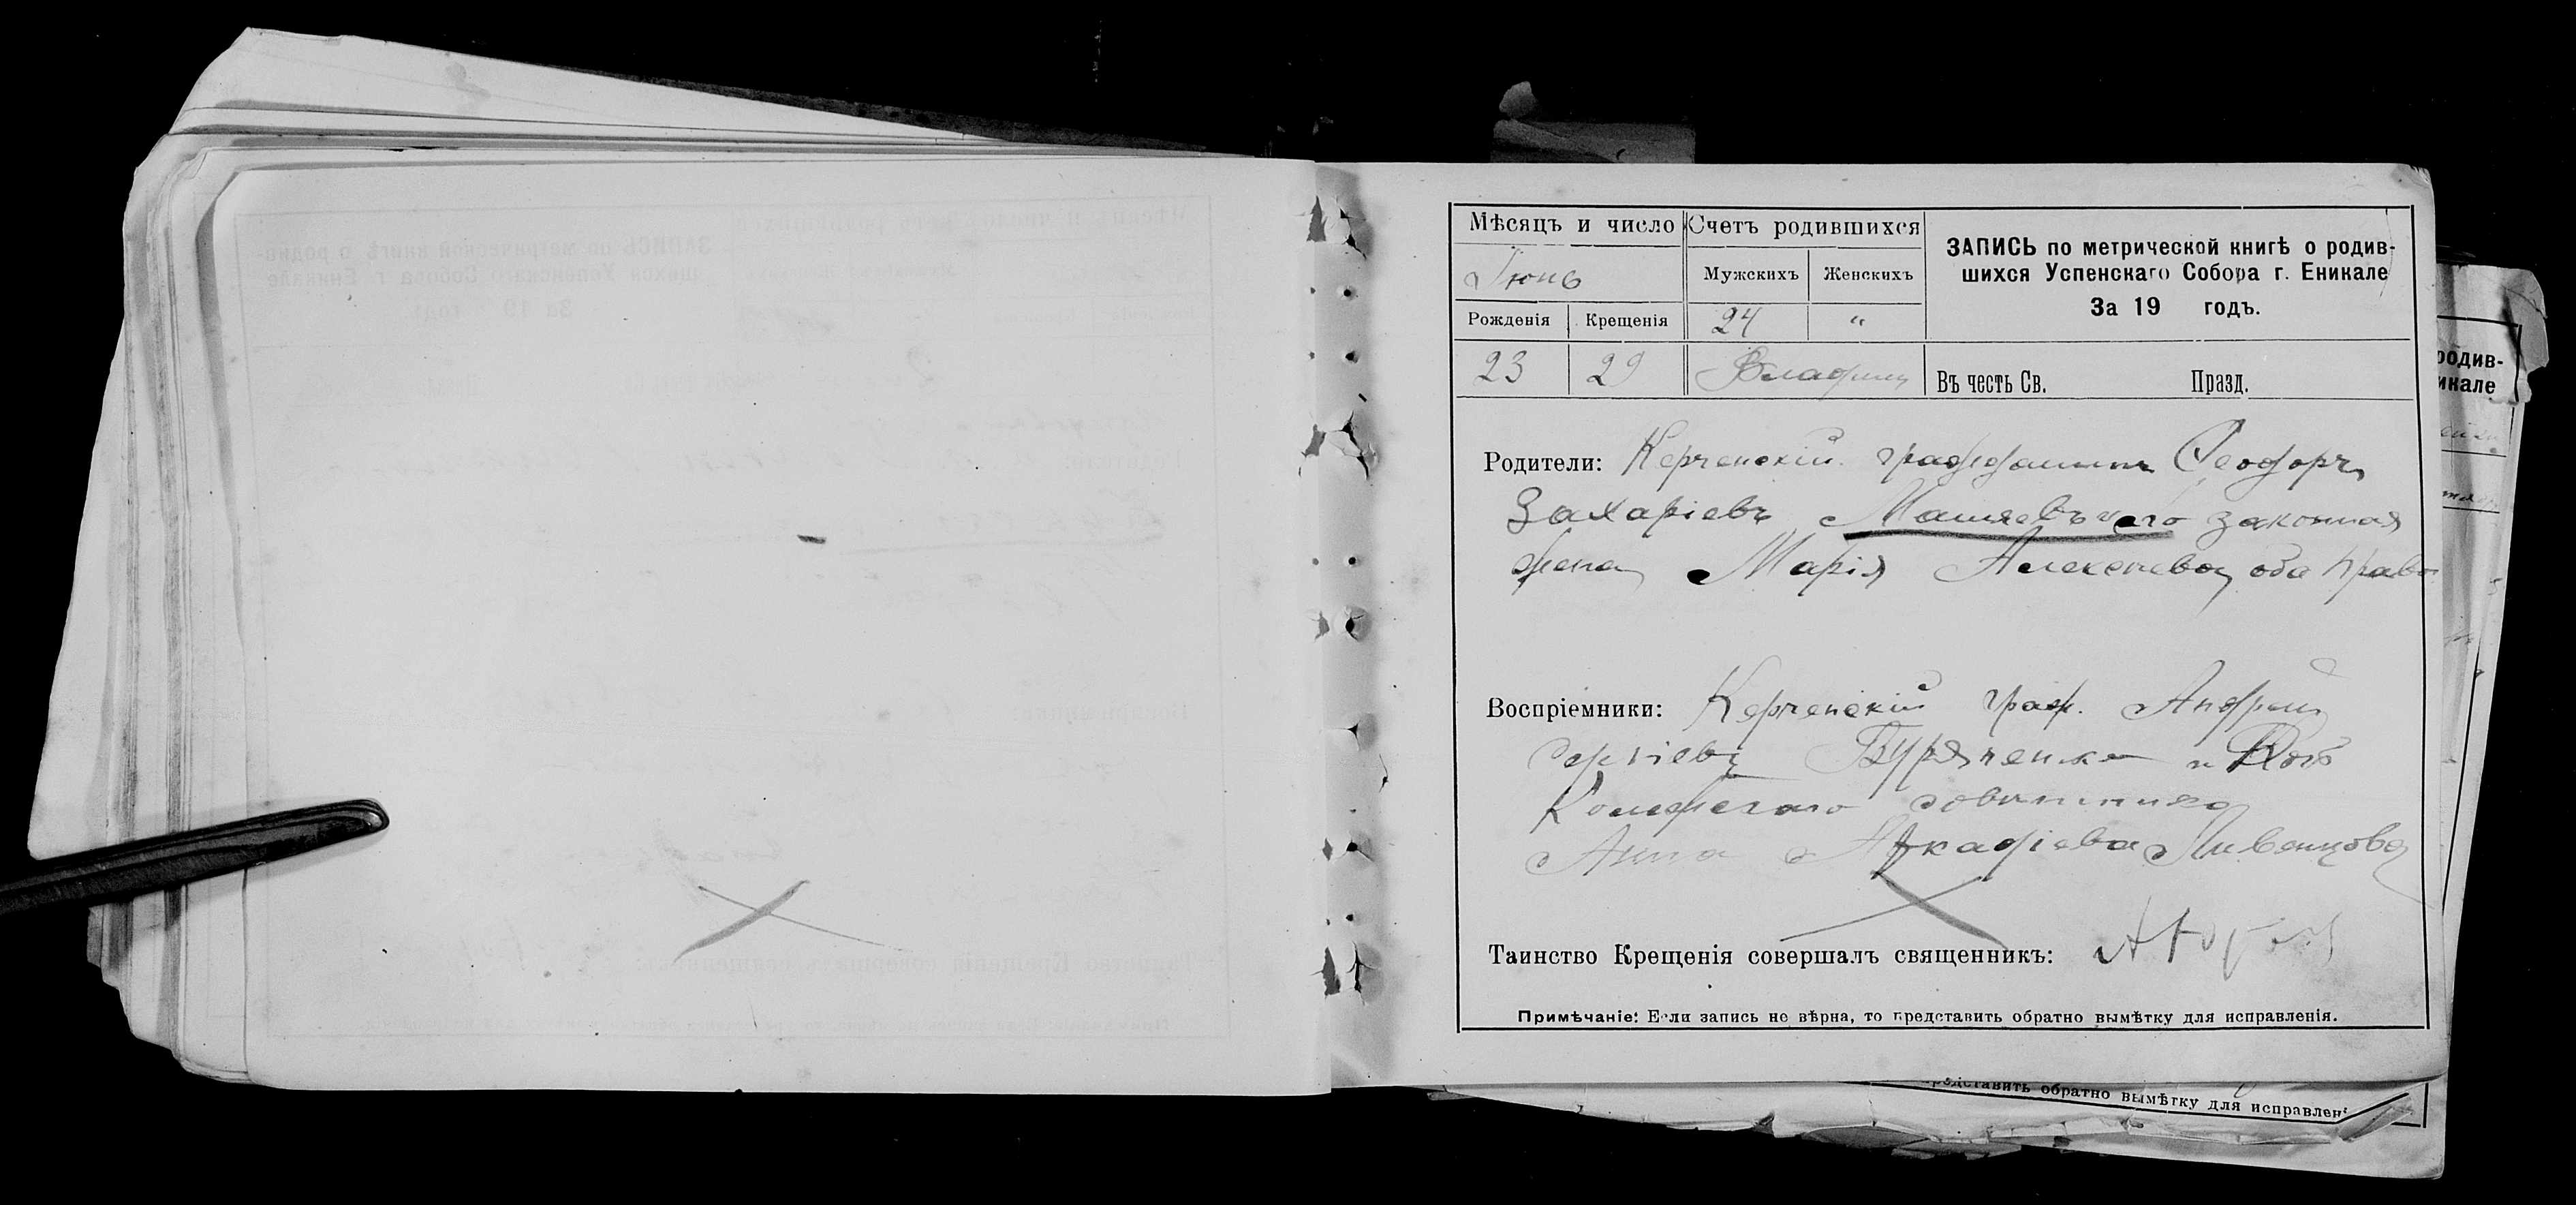 Мѣсяцъ и число
Счетъ родившихся
ЗАПИСЬ по метрической книгѣ о родив-
шихся Успенскаго Собора г. Еникале
За 19 годъ.
Іюнь
Мужскихъ
Женскихъ
Рожденія
Крещенія
24
"
23
29
Въ честь Св. Празд.
Родители: Керченскій гражданинъ Ѳеодоръ
Захаріевъ законная
жена Марія Алексѣева оба право
Воспріемники: Керченскій граж. Андрей
Сергіевъ Буряченко и
совѣтника
Анна Аркадіева Ливенцова
Таинство Крещенія совершалъ священникъ:
Примѣчаніе: Если запись не вѣрна, то представить обратно вымѣтку для исправленія.
родив-
икале
представить обратно вымѣтку для исправлені